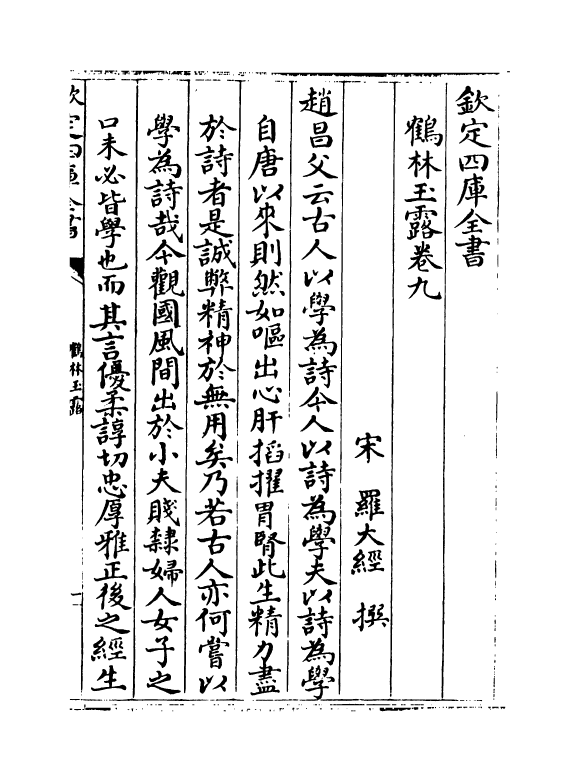 欽定四庫全書
鶴林玉露卷九
宋 羅大經 撰
趙昌父云古人以學為詩今人以詩為學夫以詩為學
自唐以來則然如嘔出心肝搯擢胃腎此生精力盡
於詩者是誠弊精神於無用矣乃若古人亦何嘗以
學為詩哉今觀國風間出於小夫賤隸婦人女子之
口未必皆學也而其言優柔諄切忠厚雅正後之經生
欽定四庫全書
鶴林玉露
一